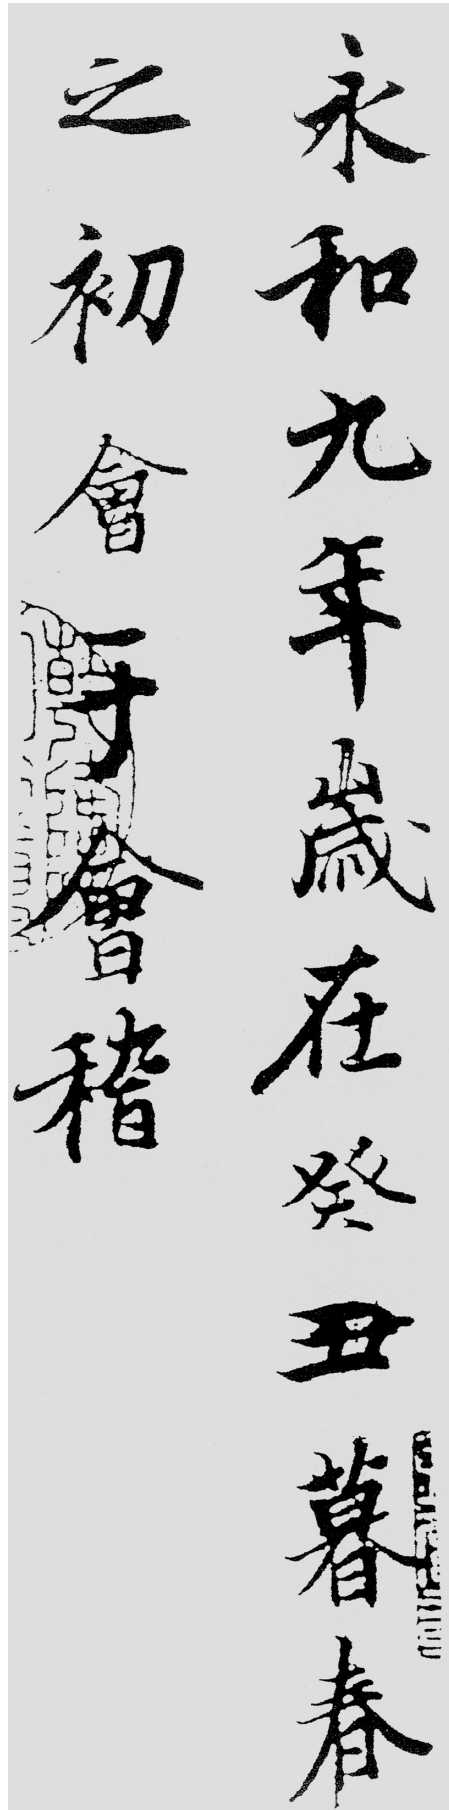 永和九年歲在癸丑暮春
之初會于會稽